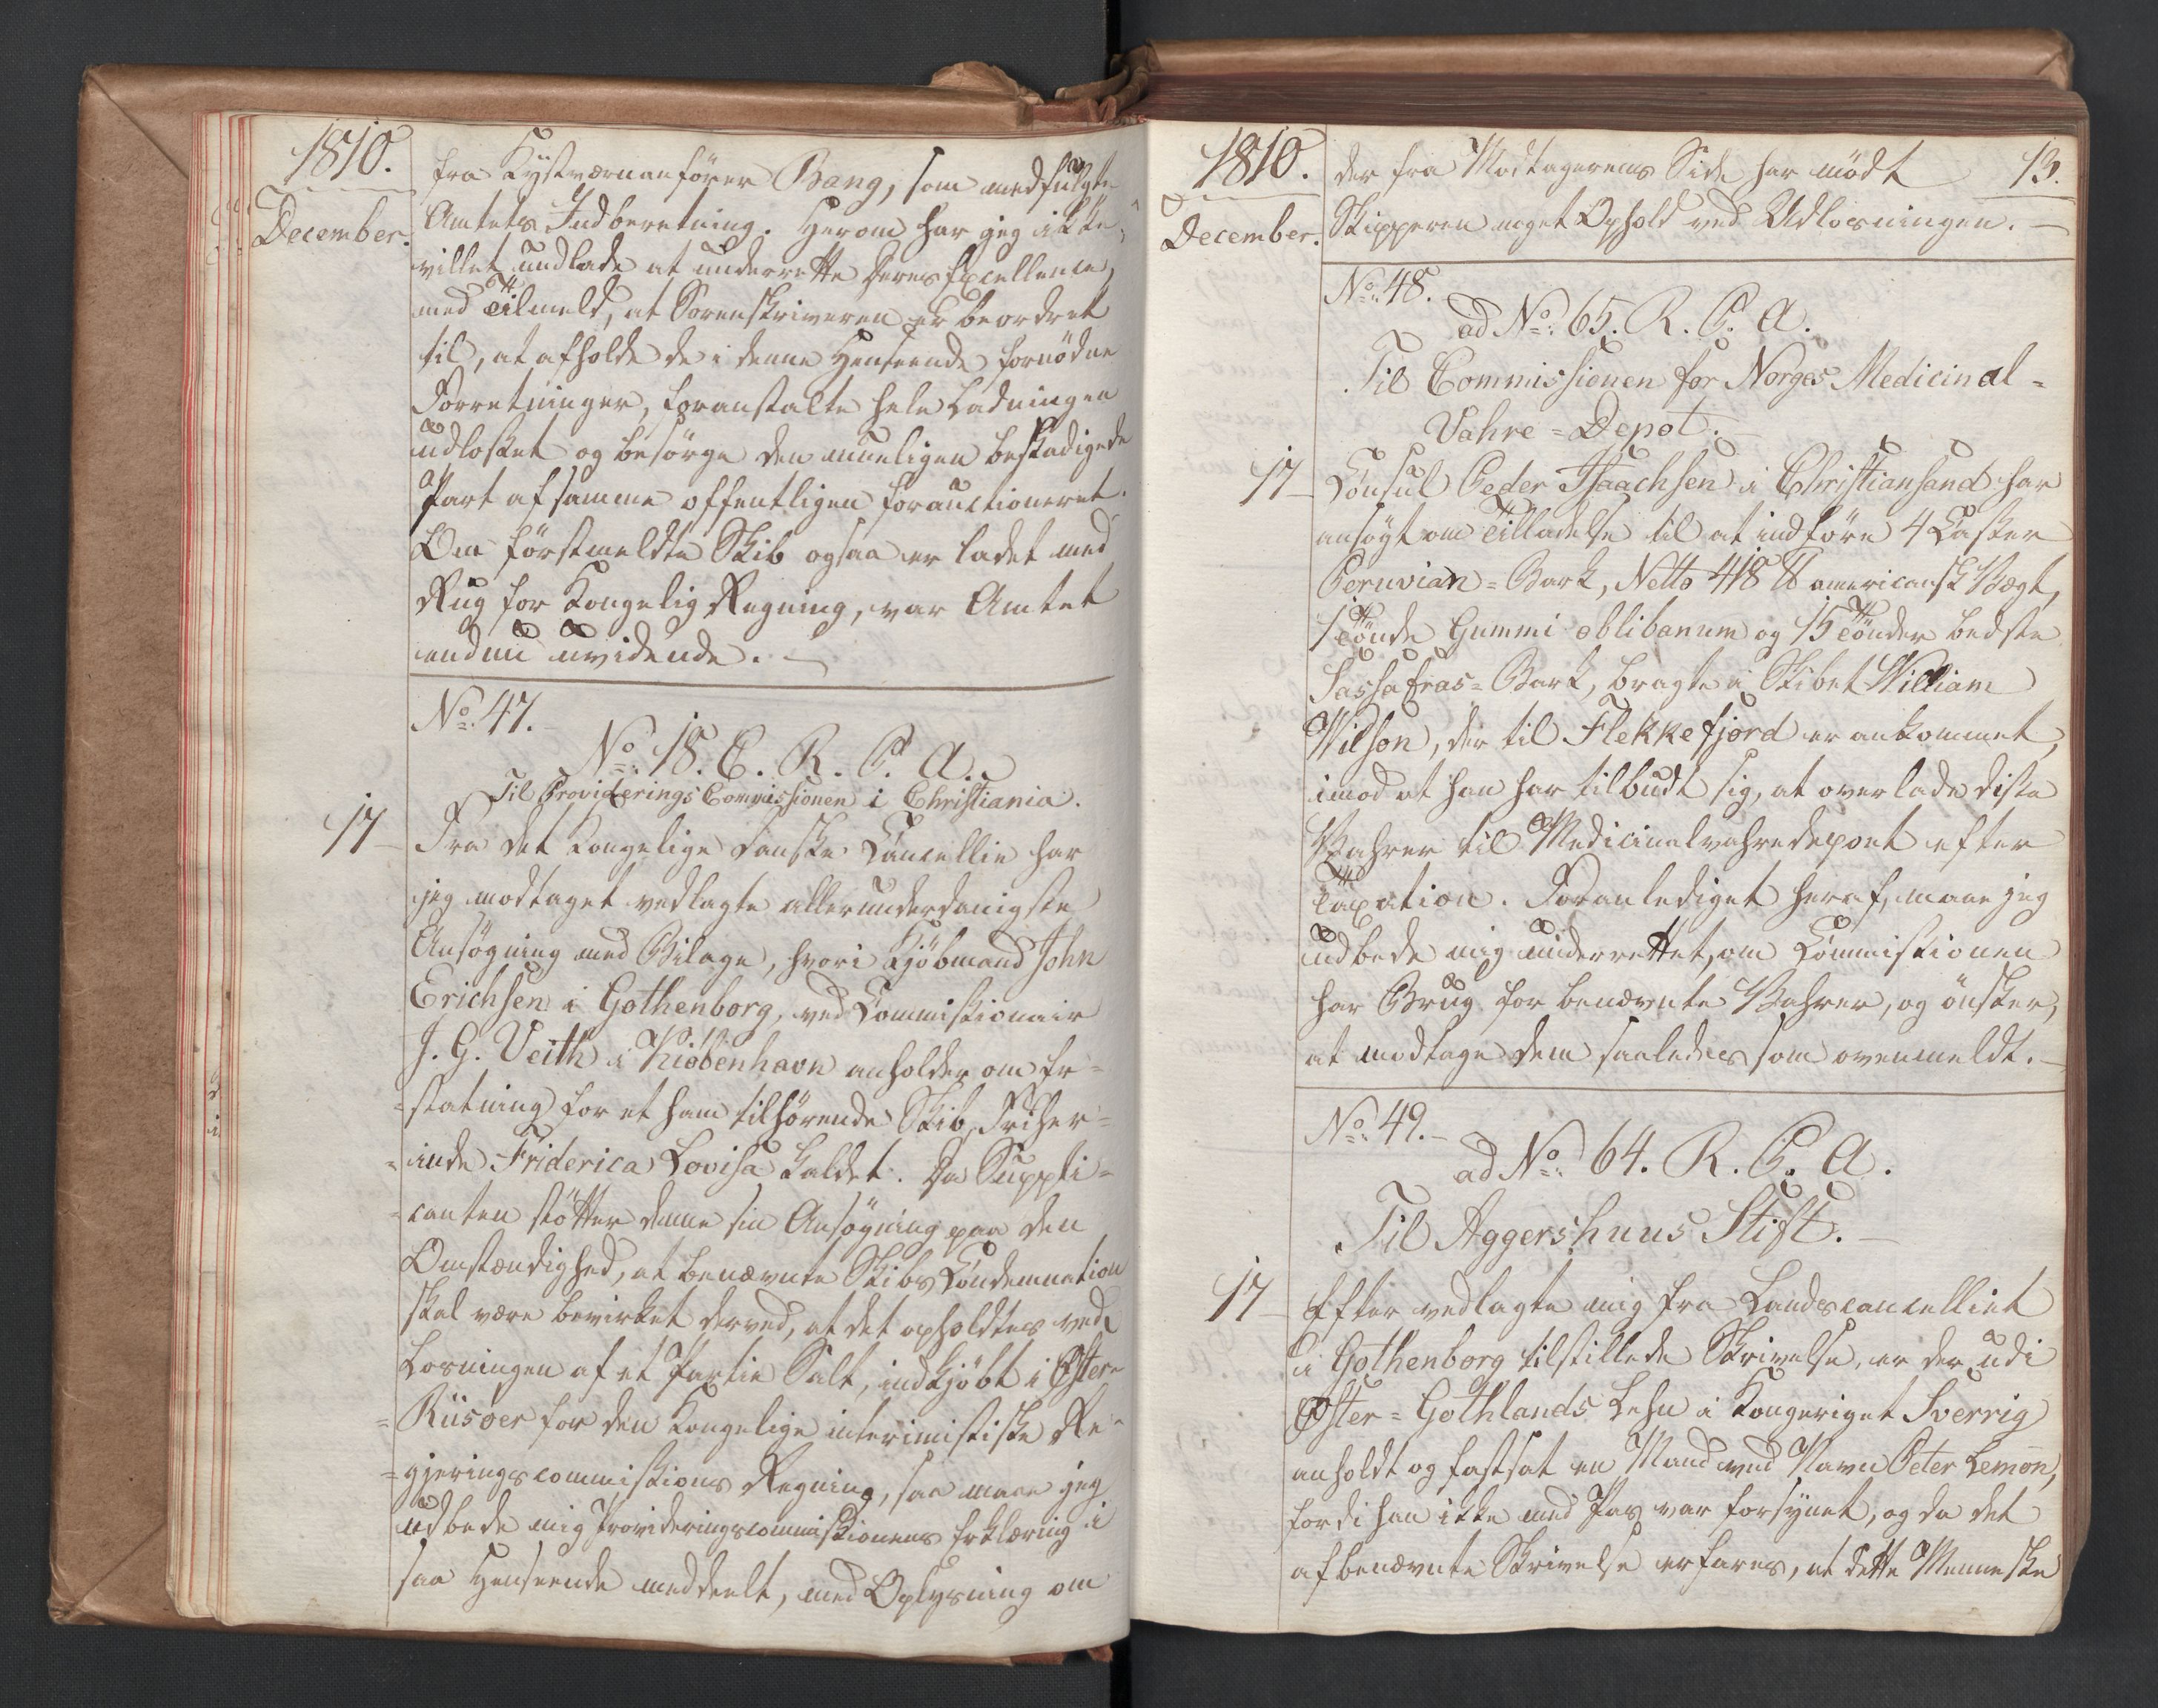 1810.
December.
fra Kystværnanfører Bang, som medfulgte
Amtets Indberetning. Herom har jeg ikke
villet undlade at underrette Deres Excellence,
med Tilmeld, at Sorenskriveren er beordret
til, at afholde de i denne Henseende fornödne
Forretninger, foranstalte hele Ladningen
udlosset og besörge den mueligen beskadigede
Part af samme offentligen forauctioneret.
Om förstmeldte Skib ogsaa er ladet med
Rug for Kongelig Regning, var Amtet
endnu uvidende. —
No. 47.
No. 18. E. R. C. A.
Til Providerings Commissionen i Christiania.
17 Fra det Kongelige danske Cancellie har
jeg modtaget vedlagte allerunderdanigste
Ansögning med Bilage, hvori Kjöbmand John
Erichsen i Gothenborg, ved Commissionair
J. G. Veith i Kiöbenhavn anholder om Er=
=statning for et ham tilhörende Skib, Friher=
=inde Friderica Lovisa kaldet. Da Suppli=
=canten stötter denne sin Ansögning paa den
Omstændighed, at benævnte Skibs Condemnation
skal være bevirket derved, at det opholdtes ved
Losningen af et Partie Salt, indkjöbt i Öster=
=Riisöer for den Kongelige interimistiske Re=
=gjeringscommissions Regning, saa maae jeg
udbede mig Provideringscommissionens Erklæring i
saa Henseende meddeelt, med Oplysning om
1810.
December.
13.
der fra Modtagerens Side har mödt
Skipperen noget Ophold ved Udlosningen. —
No. 48.
ad No. 65. R. C. A.
Til Commissionen for Norges Medicinal=
Vahre=Depot.
17 Consul Peder Isaachsen i Christiansand har
ansögt om Tilladelse til at indföre 4 Casker
Peruvian=Bark, Netto 418 ℔ americansk Vægt,
1 Tönde Gummi oblibanum og 15 Tönder bedste
Sassafras=Bark, bragte i Skibet William
Wilson, der til Flekkefjord er ankommet,
imod at han har tilbudt sig, at overlade disse
Vahrer til Medicinalvahredepoet efter
Taxation. Foranlediget heraf, maae jeg
udbede mig underrettet, om Commissionen
har Brug for benævnte Vahrer, og önsker,
at modtage dem saaledes som ovenmeldt. —
No. 49. —
ad No. 64. R. C. A.
Til Aggershuus Stift. —
17 Efter vedlagte mig fra Landscancelliet
i Gothenborg tilstillede Skrivelse, er der udi
Öster=Gothlands Lehn i Kongeriget Sverrig
anholdt og fastsat en Mand ved Navn Peter Lemon,
fordi han ikke med Pas var forsynet, og da det
af benævnte Skrivelse erfares, at dette Menneske